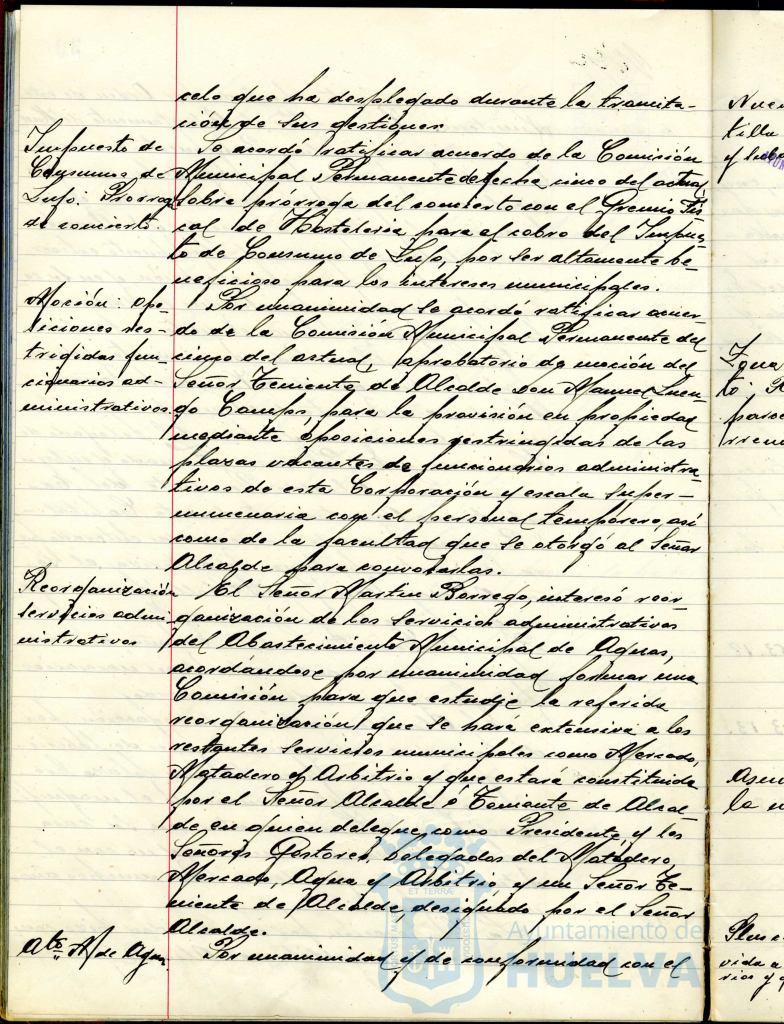 celo que ha desplegado durante la tramita-
ción de sus gestiones.
Impuesto de
Consumos de
Lujo: Prorroga
de concierto.
Se acordó ratificar acuerdo de la Comisión
Municipal Permanente de fecha cinco del actual,
sobre prórroga del concierto con el Gremio Fis-
cal de Hostelería para el cobro del Impues-
to de Consumo de Lujo, por ser altamente be-
neficioso para los intereses municipales.
Moción: opo-
siciones res-
tringidas fun-
cionarios ad-
ministrativos.
Por unanimidad se acordó ratificar acuer-
do de la Comisión Municipal Permanente del
cinco del actual, aprobatorio de moción del
Señor Teniente de Alcalde Don Manuel
Camps, para la provisión en propiedad
mediante oposiciones restringidas de las
plazas vacantes de funcionarios administra-
tivos de esta Corporación y escala super-
numeraria con el personal temporero, así
como de la facultad que se otorgó al Señor
Alcalde para convocarlas.
Reorganización
servicios admi-
nistrativos
El Señor Martin Borrego, interesó reor-
ganización de los Servicios administrativos
del Abastecimiento Municipal de Aguas,
acordándose por unanimidad formar una
Comisión para que estudie la referida
reorganización que se hará extensiva a los
restantes servicios municipales como Mercado,
Matadero y Arbitrio y que estará constituida
por el Señor Alcalde o Teniente de Alcal-
de en quien delegue, como Presidente y los
Señores Gestores, Delegados del Matadero,
Mercado, Agua y Arbitrio, y un Señor Te-
niente de Alcalde, designado por el Señor
Alcalde.
Abto M de Agua
Por unanimidad y de conformidad con el
Ayuntamiento de
HUELVA